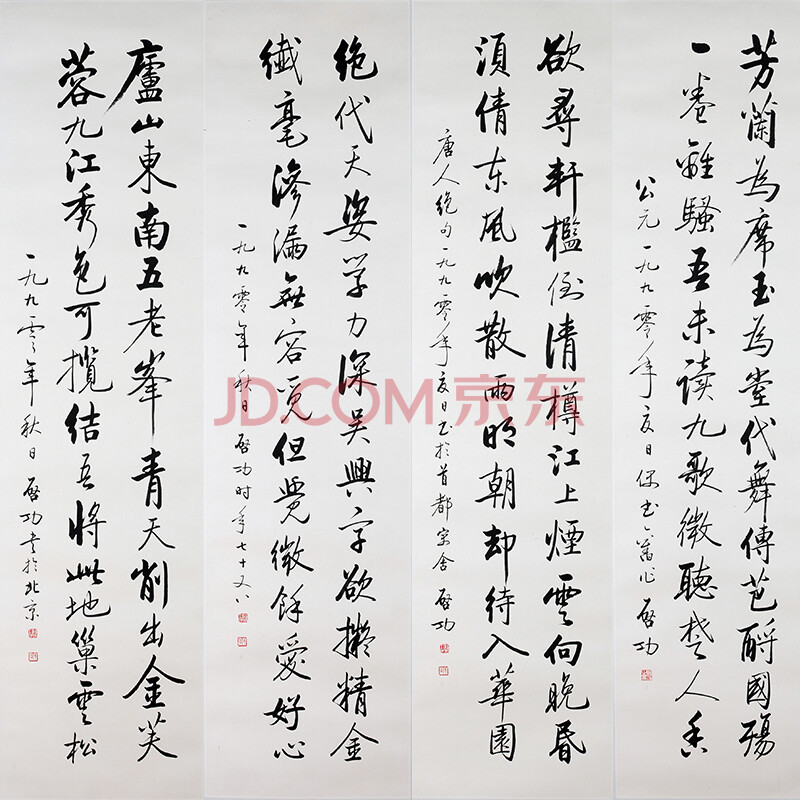 芳蘭為席玉為堂代舞傳芭酹國殤
一卷離騷吾未讀九歌微聽楚人香
公元一九九零年夏日偶書舊作 啓功
欲尋軒檻倒清樽江上煙雲向晚昏
須倩東風吹散雨明朝却待入華園
唐人絕句一九九零年夏日書於首都寓舍 啓功
絕代天姿學力深吳興字欲擬精金
纖毫滲漏無容覓但覺微餘愛好心
一九九零年秋日 啓功時年七十又八
廬山東南五老峯青天削出金芙
蓉九江秀色可攬結吾將此地巢雲松
一九九零年秋日 啓功書於北京
JD.COM京东